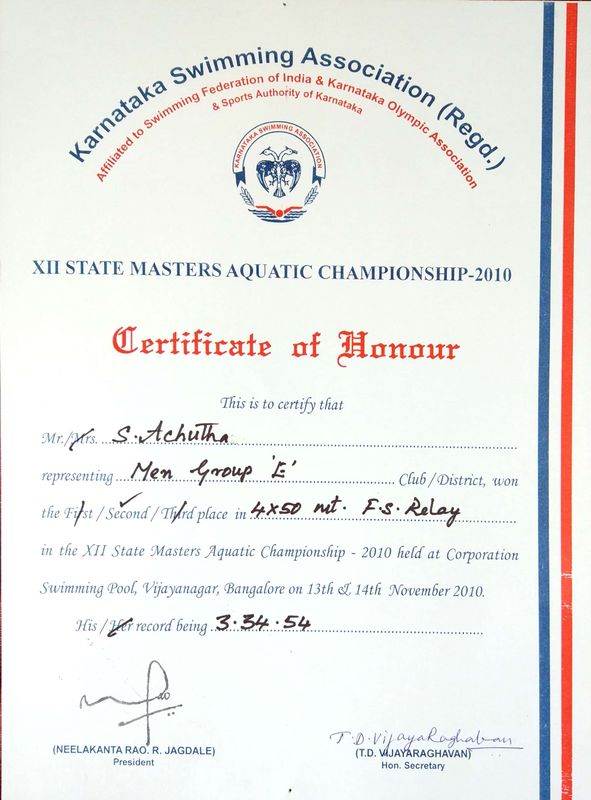 Karnataka Swimming Association (Regd.)
Affiliated to Swimming Federation of India & Karnataka Olympic Association
& Sports Authority of Karnataka
KARNATAKA SWIMMING ASSOCIATION
XII STATE MASTERS AQUATIC CHAMPIONSHIP-2010
Certificate of Honour
This is to certify that
Mr./Mrs. S. Achutha
representing Men Group 'E' Club / District, won
the First / Second / Third place in 4x50 mt. F.S. Relay
in the XII State Masters Aquatic Championship - 2010 held at Corporation
Swimming Pool, Vijayanagar, Bangalore on 13th & 14th November 2010.
His / Her record being 3.34.54
T.D. VijayaRaghavan
(NEELAKANTA RAO. R. JAGDALE)
President
(T.D. VIJAYARAGHAVAN)
Hon. Secretary